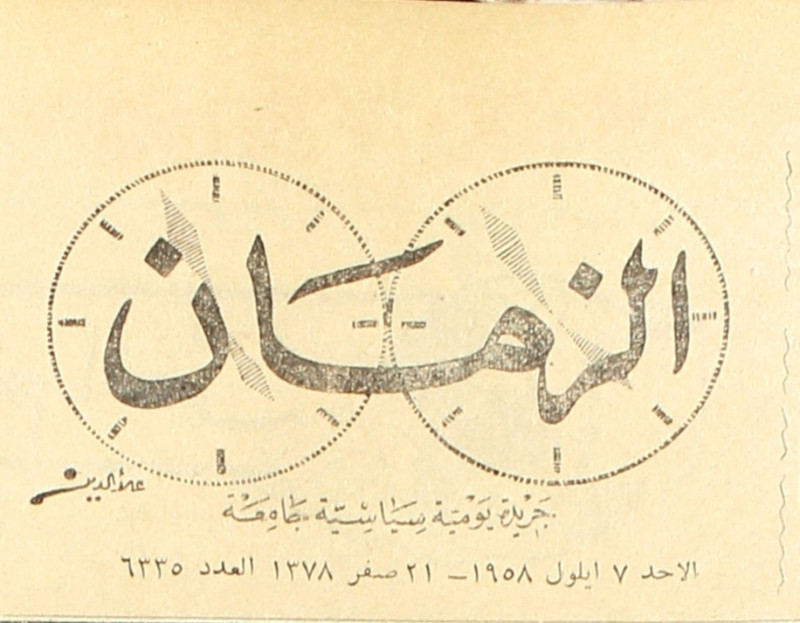 الزمان
علاء الدين
جَرِيْدَة يَوْمِيَّة سِيَاسِيَّة جَامِعَة
الاحد ٧ ايلول ١٩٥٨ – ٢١ صفر ١٣٧٨ العدد ٦٣٣٥